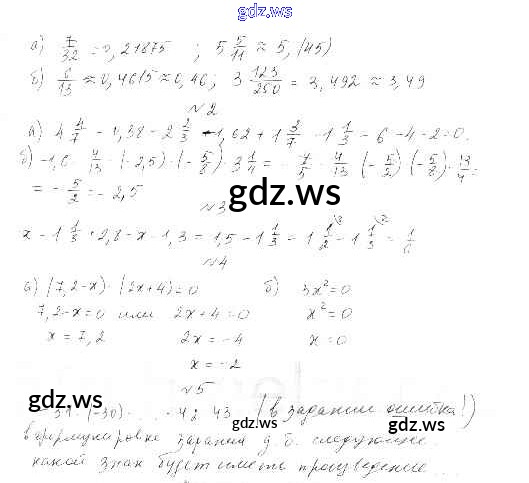 gdz.ws
а) 7/32 = 0,21875 ; 5 5/11 ≈ 5,(45)
б) 6/13 ≈ 0,4615 ≈ 0,46; 3 123/250 = 3,492 ≈ 3,49
№2
а) 4 4/7 - 1,38 - 2 2/3 - 1,62 + 1 3/7 - 1 1/3 = 6 - 4 - 2 = 0.
б) -1,6 · 4/13 · (-2,5) · (-5/8) · 3 1/4 = - /5 · 4/13 · (-5/2) · (-5/8) · 13/4 =
= - 5/2 = - 2,5
gdz.ws
№3
x - 1 1/3 + 2,8 - x - 1,3 = 1,5 - 1 1/3 = 1 1/2 - 1 1/3 = 1/6
№4
а) (7,2-x) · (2x+4) = 0 б) 3x² = 0
7,2-x = 0 или 2x+4 = 0 x² = 0
x = 7,2 2x = -4 x = 0
x = -2
№5
gdz.ws
-31 · (-30) · ... · 42 · 43 (в задании ошибка!)
gdz.ws gdz.ws
в формулировке задания д.б. следующие
какой знак будет иметь произведение